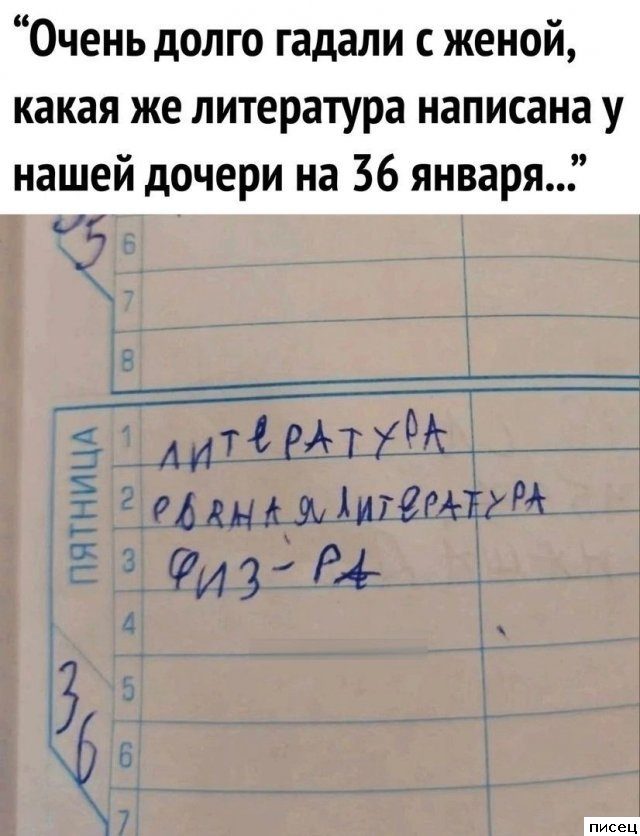 “Очень долго гадали с женой,
какая же литература написана у
нашей дочери на 36 января...”
5
6
7
8
ПЯТНИЦА
1 ЛИТЕРАТУРА
2 ЛИТЕРАТУРА
3 ФИЗ-РА
4
5
36
6
7
писец